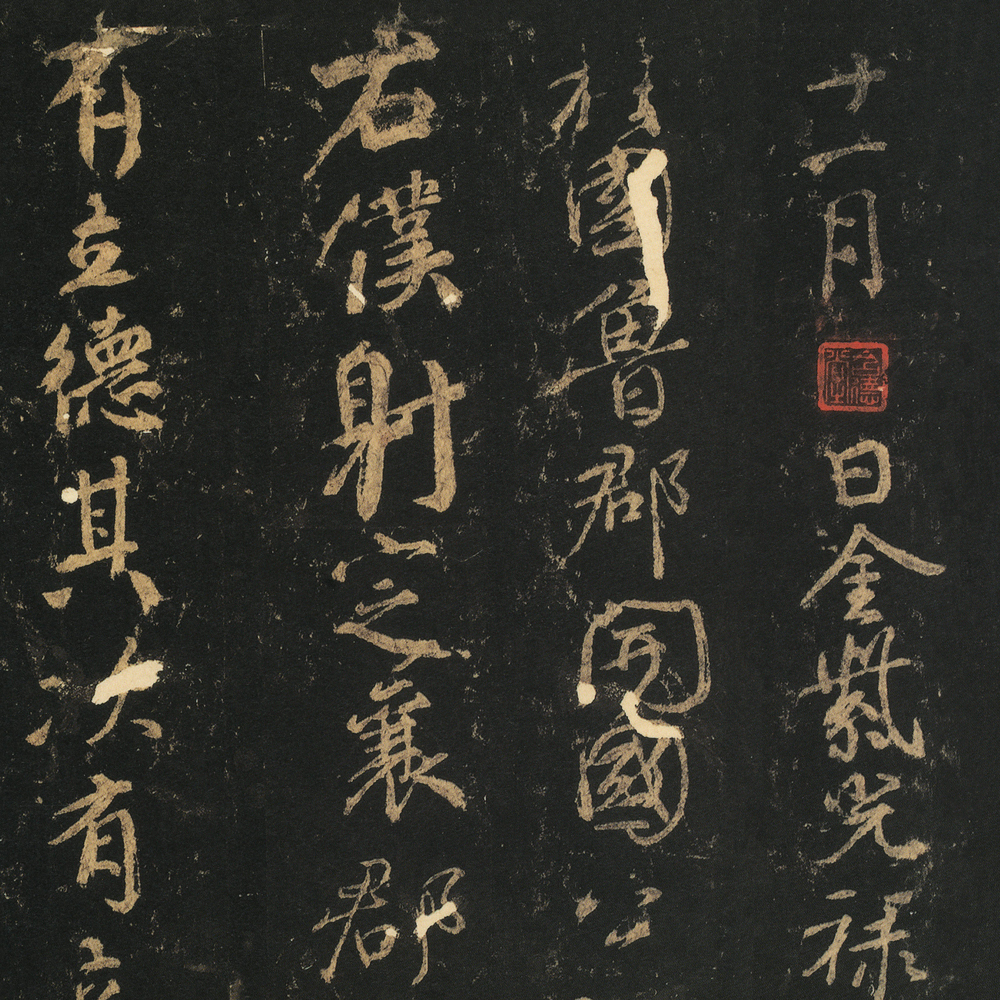 十一月日金紫光祿
柱國魯郡開國公
右僕射定襄郡
有立德其次有立